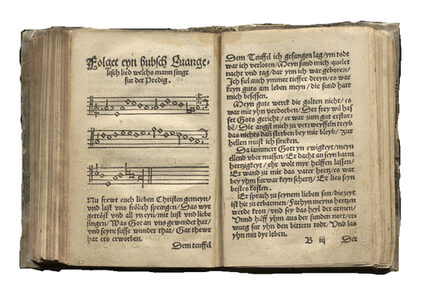 Folget eyn hubsch Euange-
lisch lied welchs mann singt
fur der Predig.
Nu frewt euch lieben Christen gemeyn/
vnd last vns frölich springen/ Das wyr
getröst vnd all yn eyn/ mit lust vnd liebe
singen/ Was Got an vns gewendet hat/
vnd seyne susse wunder that/ Gar thewr
hat ers erworben.
Dem teuffel
Dem Teuffel ich gefangen lag/ ym todt
war ich verloren/ Meyn sund mich quelet
nacht vnd tag/ dar ynn ich war geboren/
Ich fiel auch ymmer tieffer dreyn/ es war
keyn guts am leben meyn/ die sund hatt
mich besessen.
Meyn gute werck die golten nicht/ es
war mit yhn verdorben/ Der frey will has-
set Gots gericht/ er war zum gut erstor-
ben/ Die angst mich zu verzweyffeln treyb
das nichts dan sterben bey mir bleyb/ zur
hellen must ich sincken.
Da iammert Gott yn ewigkeyt/ meyn
ellend vber massen/ Er dacht an seyn barm
hertzigkeyt/ ehr wolt myr helffen lassen/
Er wand zu mir das vater hertz/ es war
bey yhm furwar keyn schertz/ Er lies seyn
bestes kosten.
Er sprach zu seynem lieben son/ die zeyt
ist hie zu erbarmen/ Farhyn meyns hertzen
werde kron/ vnd sey das heyl der armen/
Vnnd hilff yhm aus der sunden nott/ er-
wurg fur yhn den bittern todt/ Vnd las
yhn mit dyr leben.
B iij Der